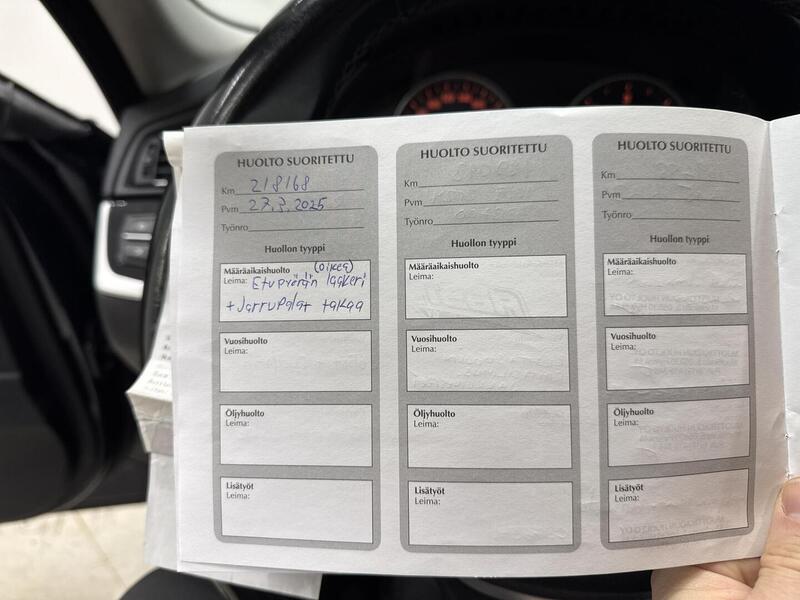 HUOLTO SUORITETTU
Km 218168
Pvm 27.3.2025
Työnro
Huollon tyyppi
Määräaikaishuolto (oikea)
Leima: Etupyörän laakeri
+ Jarrupalat takaa
Vuosihuolto
Leima:
Öljyhuolto
Leima:
Lisätyöt
Leima:
HUOLTO SUORITETTU
Km
Pvm
Työnro
Huollon tyyppi
Määräaikaishuolto
Leima:
Vuosihuolto
Leima:
Öljyhuolto
Leima:
Lisätyöt
Leima:
HUOLTO SUORITETTU
Km
Pvm
Työnro
Huollon tyyppi
Määräaikaishuolto
Leima:
Vuosihuolto
Leima:
Öljyhuolto
Leima:
Lisätyöt
Leima: